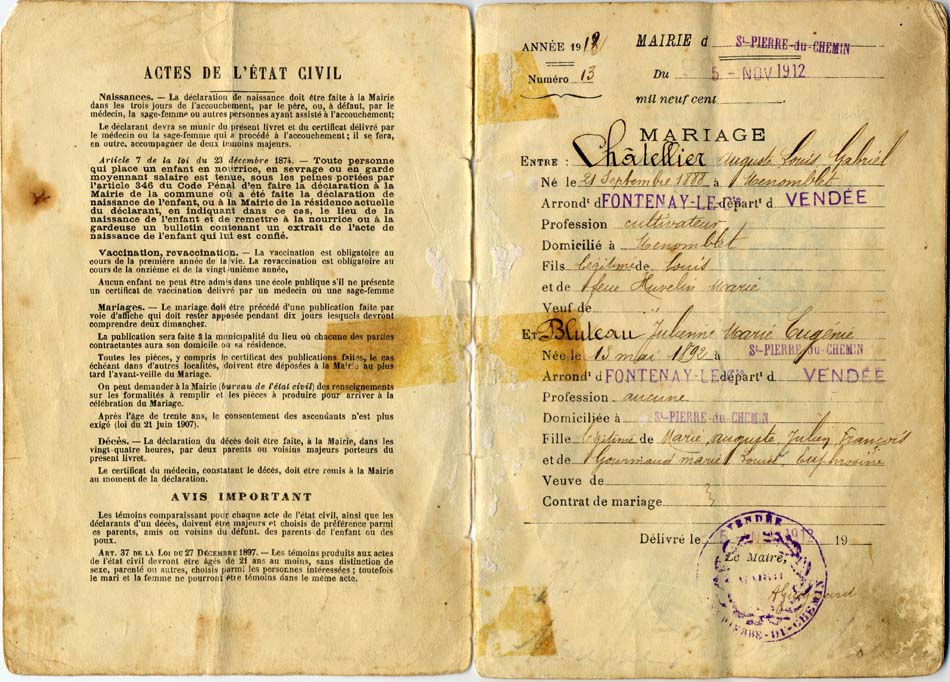 ACTES DE L'ÉTAT CIVIL
Naissances. — La déclaration de naissance doit être faite à la Mairie
dans les trois jours de l'accouchement, par le père, ou, à défaut, par le
médecin, la sage-femme ou autres personnes ayant assisté à l'accouchement;
Le déclarant devra se munir du présent livret et du certificat délivré par
le médecin ou la sage-femme qui a procédé à l'accouchement; il se fera,
en outre, accompagner de deux témoins majeurs.
Article 7 de la loi du 23 décembre 1874. — Toute personne
qui place un enfant en nourrice, en sevrage ou en garde
moyennant salaire est tenue, sous les peines portées par
l'article 346 du Code Pénal d'en faire la déclaration à la
Mairie de la commune où a été faite la déclaration de
naissance de l'enfant, ou à la Mairie de la résidence actuelle
du déclarant, en indiquant dans ce cas, le lieu de la
naissance de l'enfant et de remettre à la nourrice ou à la
gardeuse un bulletin contenant un extrait de l'acte de
naissance de l'enfant qui lui est confié.
Vaccination, revaccination. — La vaccination est obligatoire au
cours de la première année de la vie. La revaccination est obligatoire au
cours de la onzième et de la vingt-unième année,
Aucun enfant ne peut être admis dans une école publique s'il ne présente
un certificat de vaccination délivré par un médecin ou une sage-femme
Mariages. — Le mariage doit être précédé d'une publication faite par
voie d'affiche qui doit rester apposée pendant dix jours lesquels devront
comprendre deux dimanches.
La publication sera faite à la municipalité du lieu où chacune des parties
contractactes aura son domicile ou sa résidence.
Toutes les pièces, y compris le certificat des publications faites, le cas
échéant dans d'autres localités, doivent être déposées à la Mairie au plus
tard l'avant-veille du Mariage.
On peut demander à la Mairie (bureau de l'état civil) des renseignements
sur les formalités à remplir et les pièces à produire pour arriver à la
célébration du Mariage.
Après l'âge de trente ans, le consentement des ascendants n'est plus
exigé (loi du 21 juin 1907).
Décès. — La déclaration du décès doit être faite, à la Mairie, dans les
vingt-quatre heures, par deux parents ou voisins majeurs porteurs du
présent livret.
Le certificat du médecin, constatant le décès, doit être remis à la Mairie
au moment de la déclaration.
AVIS IMPORTANT
Les témoins comparaissant pour chaque acte de l'état civil, ainsi que les
déclarants d'un décès, doivent être majeurs et choisis de préférence parmi
es parents, amis ou voisins du défunt. des parents de l'enfant ou des
poux.
ART. 37 DE LA LOI DU 27 DÉCEMBRE 1897. — Les témoins produits aux actes
de l'état civil devront être âgés de 21 ans au moins, sans distinction de
sexe, parenté ou autres, choisis parmi les personnes intéressées; toutefois
le mari et la femme ne pourront être témoins dans le même acte.
ANNÉE 1912
Numéro 13
MAIRIE d St-PIERRE-du-CHEMIN
Du 5 - NOV 1912
mil neuf cent
MARIAGE
ENTRE : Châtellier Auguste Louis Gabriel
Né le 21 Septembre 1888 à Menomblet
Arrondt d FONTENAY-LE-Cte départt d VENDÉE
Profession cultivateur
Domicilié à Menomblet
Fils légitime de Louis
et de feue Huvelin Marie
Veuf de
ET Bluteau Julienne Marie Eugénie
Née le 13 mai 1892 à St-PIERRE-du-CHEMIN
Arrondt d FONTENAY-LE départt d VENDÉE
Profession aucune
Domiciliée à St-PIERRE-du-CHEMIN
Fille légitime de Marie, auguste, Julien François
et de Gourmaud marie Louise Euphrosine
Veuve de
Contrat de mariage
Délivré le 5 1912 19
Le Maire,
VENDÉE
MAIRIE
PIERRE-DU-CHEMIN